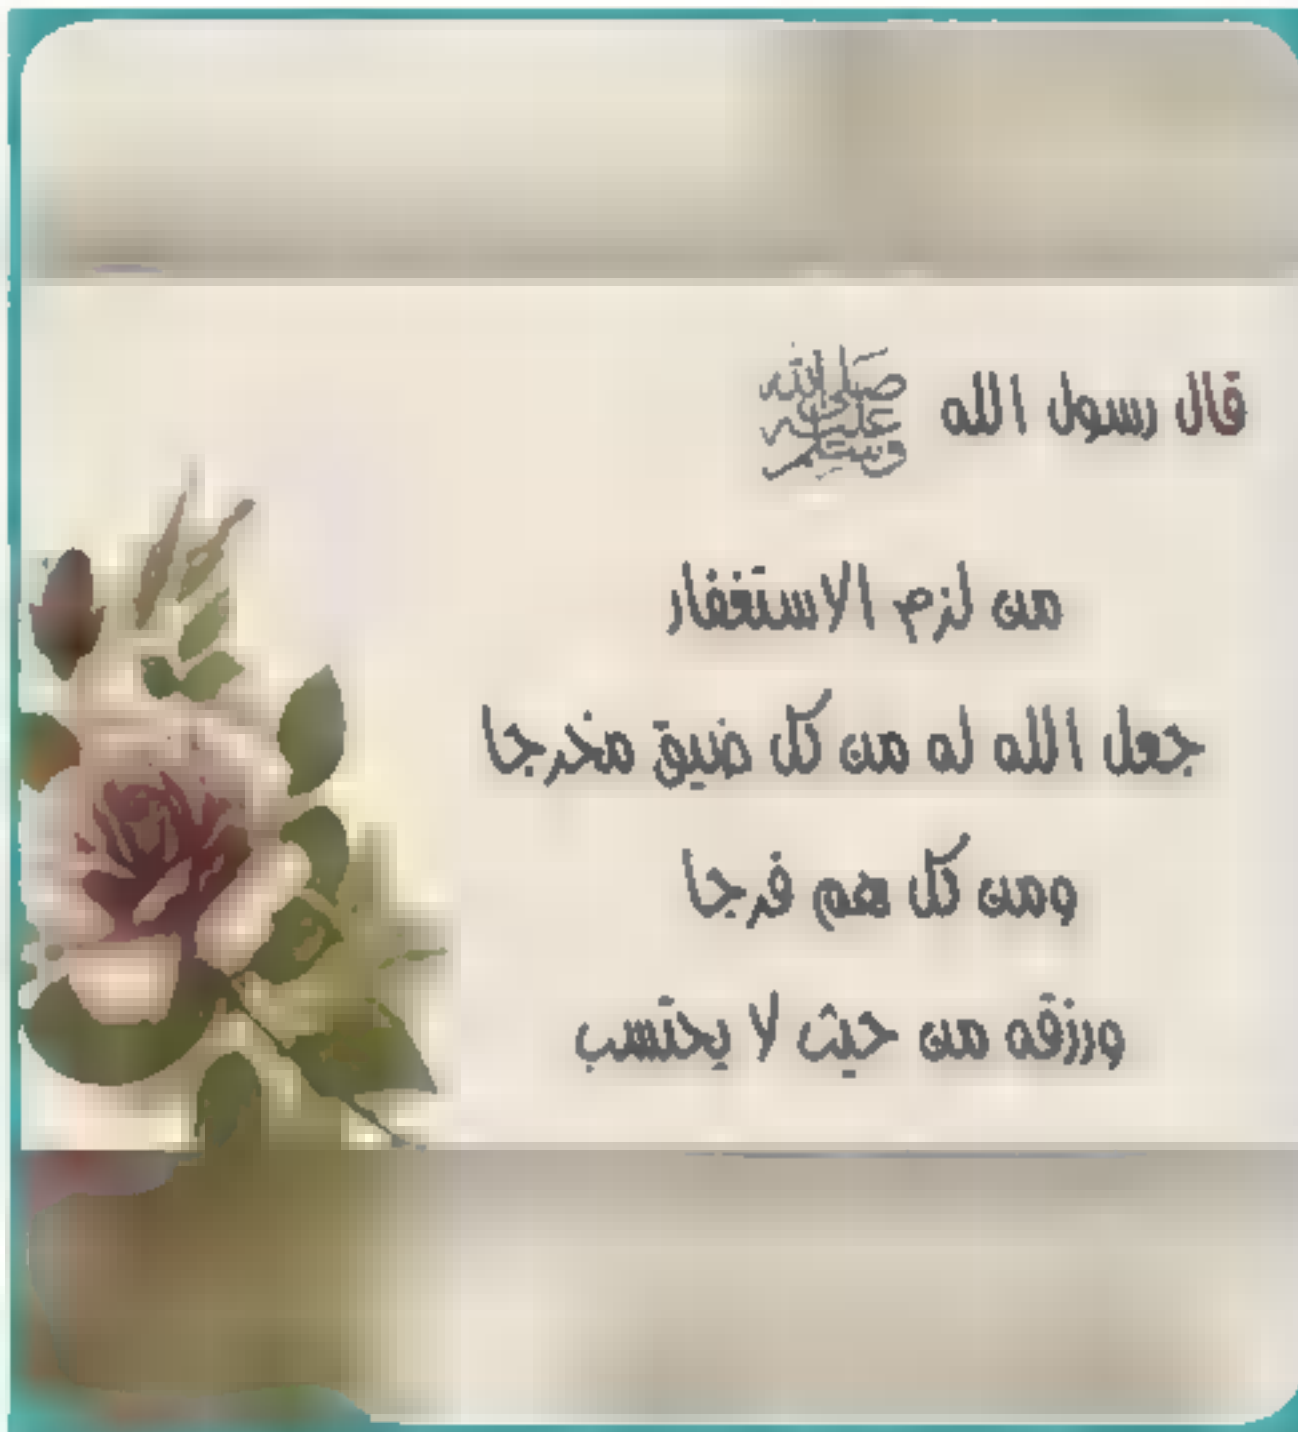 قال رسول الله ﷺ
من لزم الاستغفار
جعل الله له من كل ضيق مخرجا
ومن كل هم فرجا
ورزقه من حيث لا يحتسب